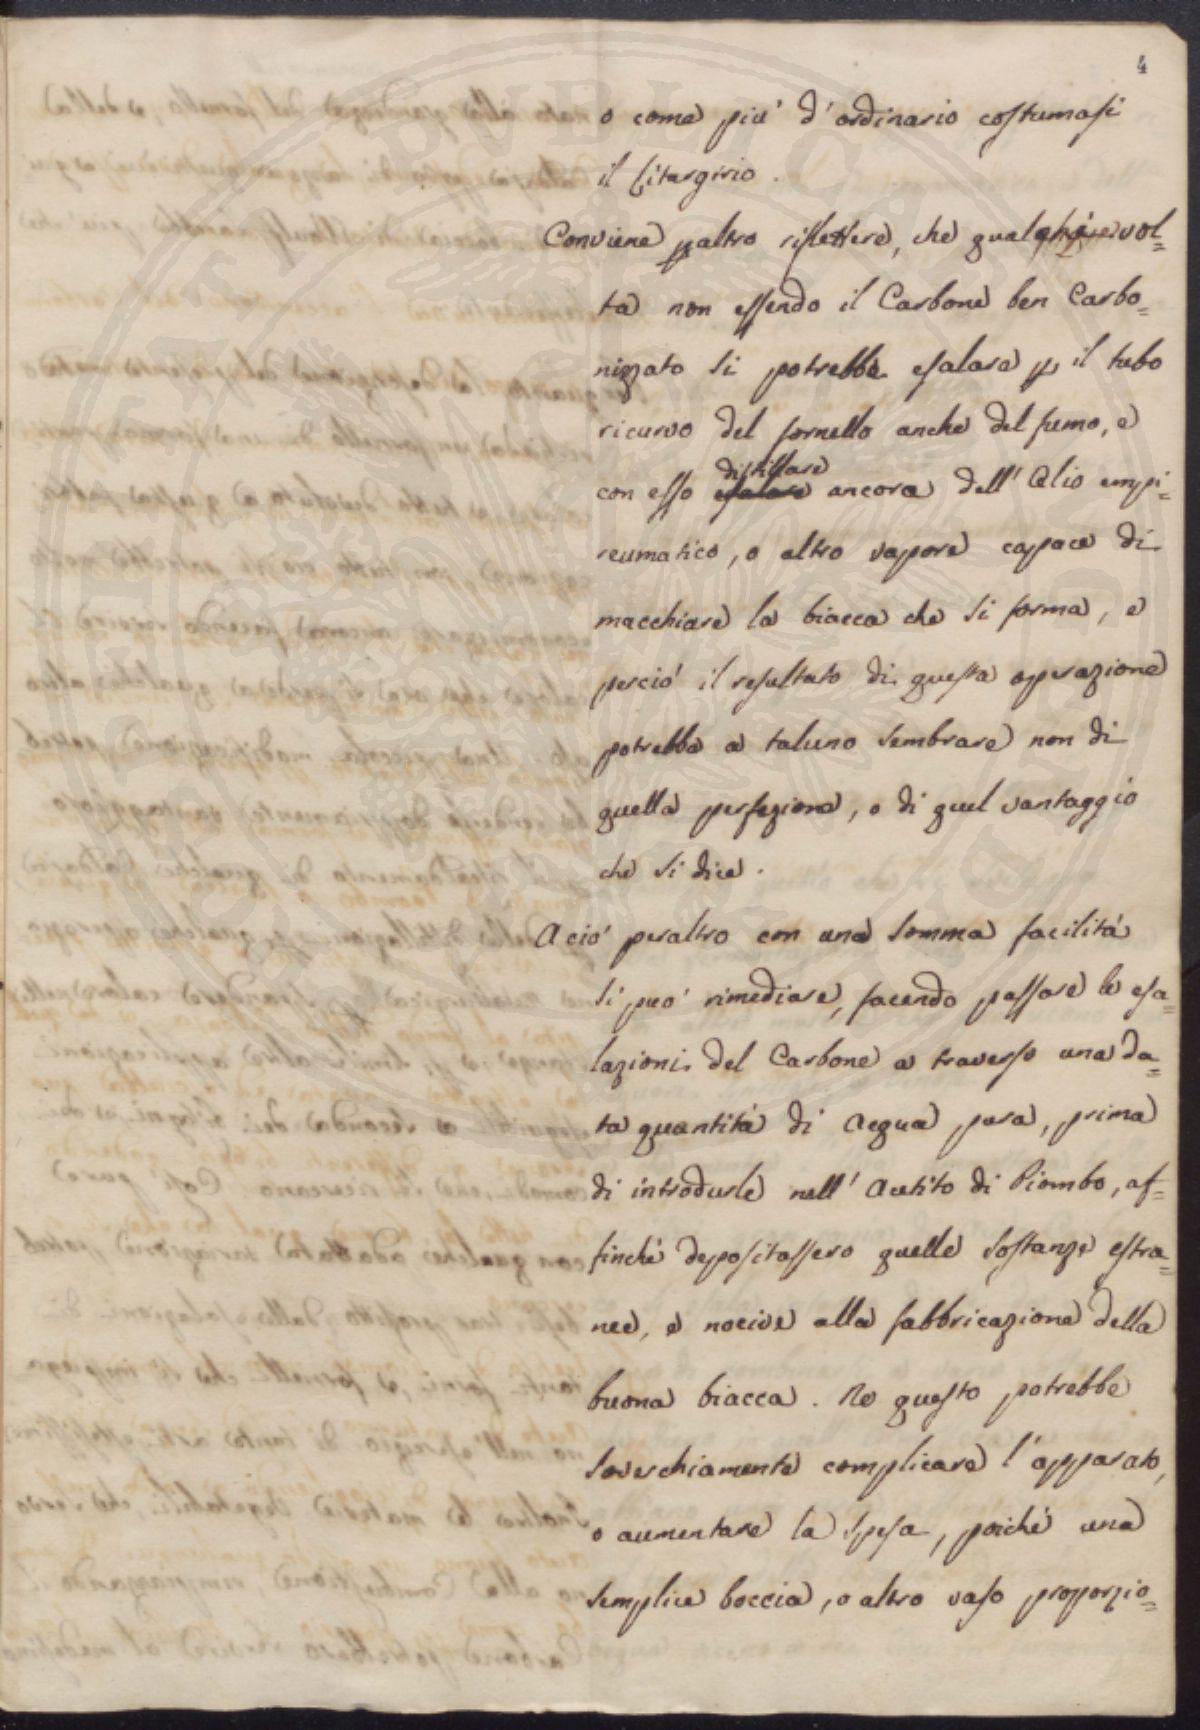 4
o come più d'ordinario costumasi
il Litargirio.
Conviene paltro riflettere, che qualche vol=
ta non essendo il Carbone ben Carbo=
nizzato si potrebbe esalare p il tubo
ricurvo del fornello anche del fumo, e
distillare
con esso esalare ancora dell'Olio empi=
reumatico, o altro vapore capace di
macchiare la biacca che si forma, e
perciò il resultato di questa operazione
potrebbe a taluno sembrare non di
quella perfezione, o di quel vantaggio
che si dice.
A ciò peraltro con una somma facilità
si può rimediare, facendo passare le esa=
lazioni del Carbone a traverso una da=
ta quantità di Acqua pura, prima
di introdurle nell'Acetito di Piombo, af=
finchè depositassero quelle sostanze estra=
nee, e nocive alla fabbricazione della
buona biacca. Ne questo potrebbe
soverchiamente complicare l'apparato,
o aumentare la spesa, poichè una
semplice boccia, o altro vaso proporzio=